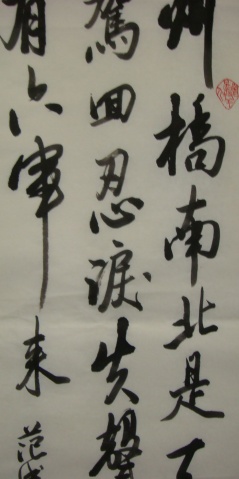 州橋南北是
駕回忍淚失聲
有六軍来
范成